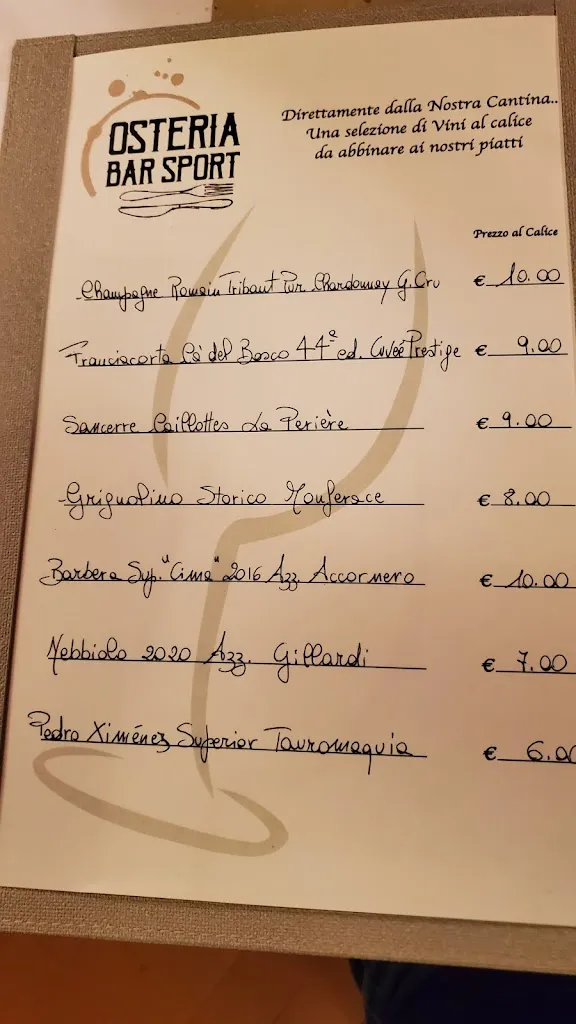 OSTERIA
BAR SPORT
Direttamente dalla Nostra Cantina..
Una selezione di Vini al calice
da abbinare ai nostri piatti
Prezzo al Calice
Champagne Romain Tribaut Pur Chardonnay G.Cru € 10.00
Franciacorta Cà del Bosco 44ª ed. Cuvèe Prestige € 9.00
Sancerre Caillottes La Perière € 9.00
Grignolino Storico Monferace € 8.00
Barbera Sup. "Cima" 2016 Azz. Accornero € 10.00
Nebbiolo 2020 Azz. Gillardi € 7.00
Pedro Ximénez Superior Tauromaquia € 6.00